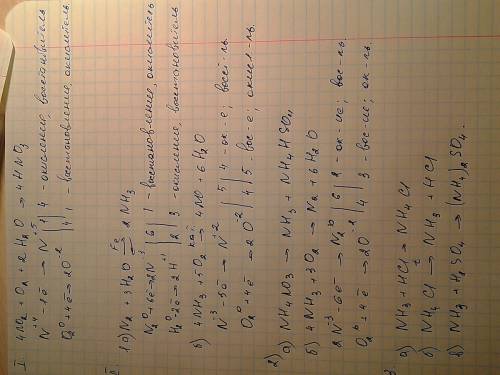 I 4NO₂ + O₂ + 2H₂O → 4HNO₃
N⁺⁴ - 1ē → N⁺⁵ | 1 | 4 - окисление, восстановитель
O₂⁰ + 4ē → 2O⁻² | 4 | 1 - восстановление, окислитель
II.
1. а) N₂ + 3H₂O ⇄ Fe 2NH₃
N₂⁰ + 6ē → 2N⁻³ | 6 | 1 - восстановление, окислитель
H₂⁰ - 2ē → 2H⁺¹ | 2 | 3 - окисление, восстановитель
б) 4NH₃ + 5O₂ кат.→ 4NO + 6H₂O
N⁻³ - 5ē → N⁺² | 5 | 4 ок-е; восст-ль
O₂⁰ + 4ē → 2O⁻² | 4 | 5 - вос-е; окисл-ль.
2) а) NH₄NO₃ → NH₃ + NH₄HSO₄
б) 4NH₃ + 3O₂ → N₂ + 6H₂O
2N⁻³ - 6ē → N₂⁰ | 6 | 2 - ок-ие; вос-ль.
O₂⁰ + 4ē → 2O⁻² | 4 | 3 - вос-ие; ок-ль.
3.
а) NH₃ + HCl → NH₄Cl
б) NH₄Cl t→ NH₃ + HCl
в) NH₃ + H₂SO₄ → (NH₄)₂SO₄.